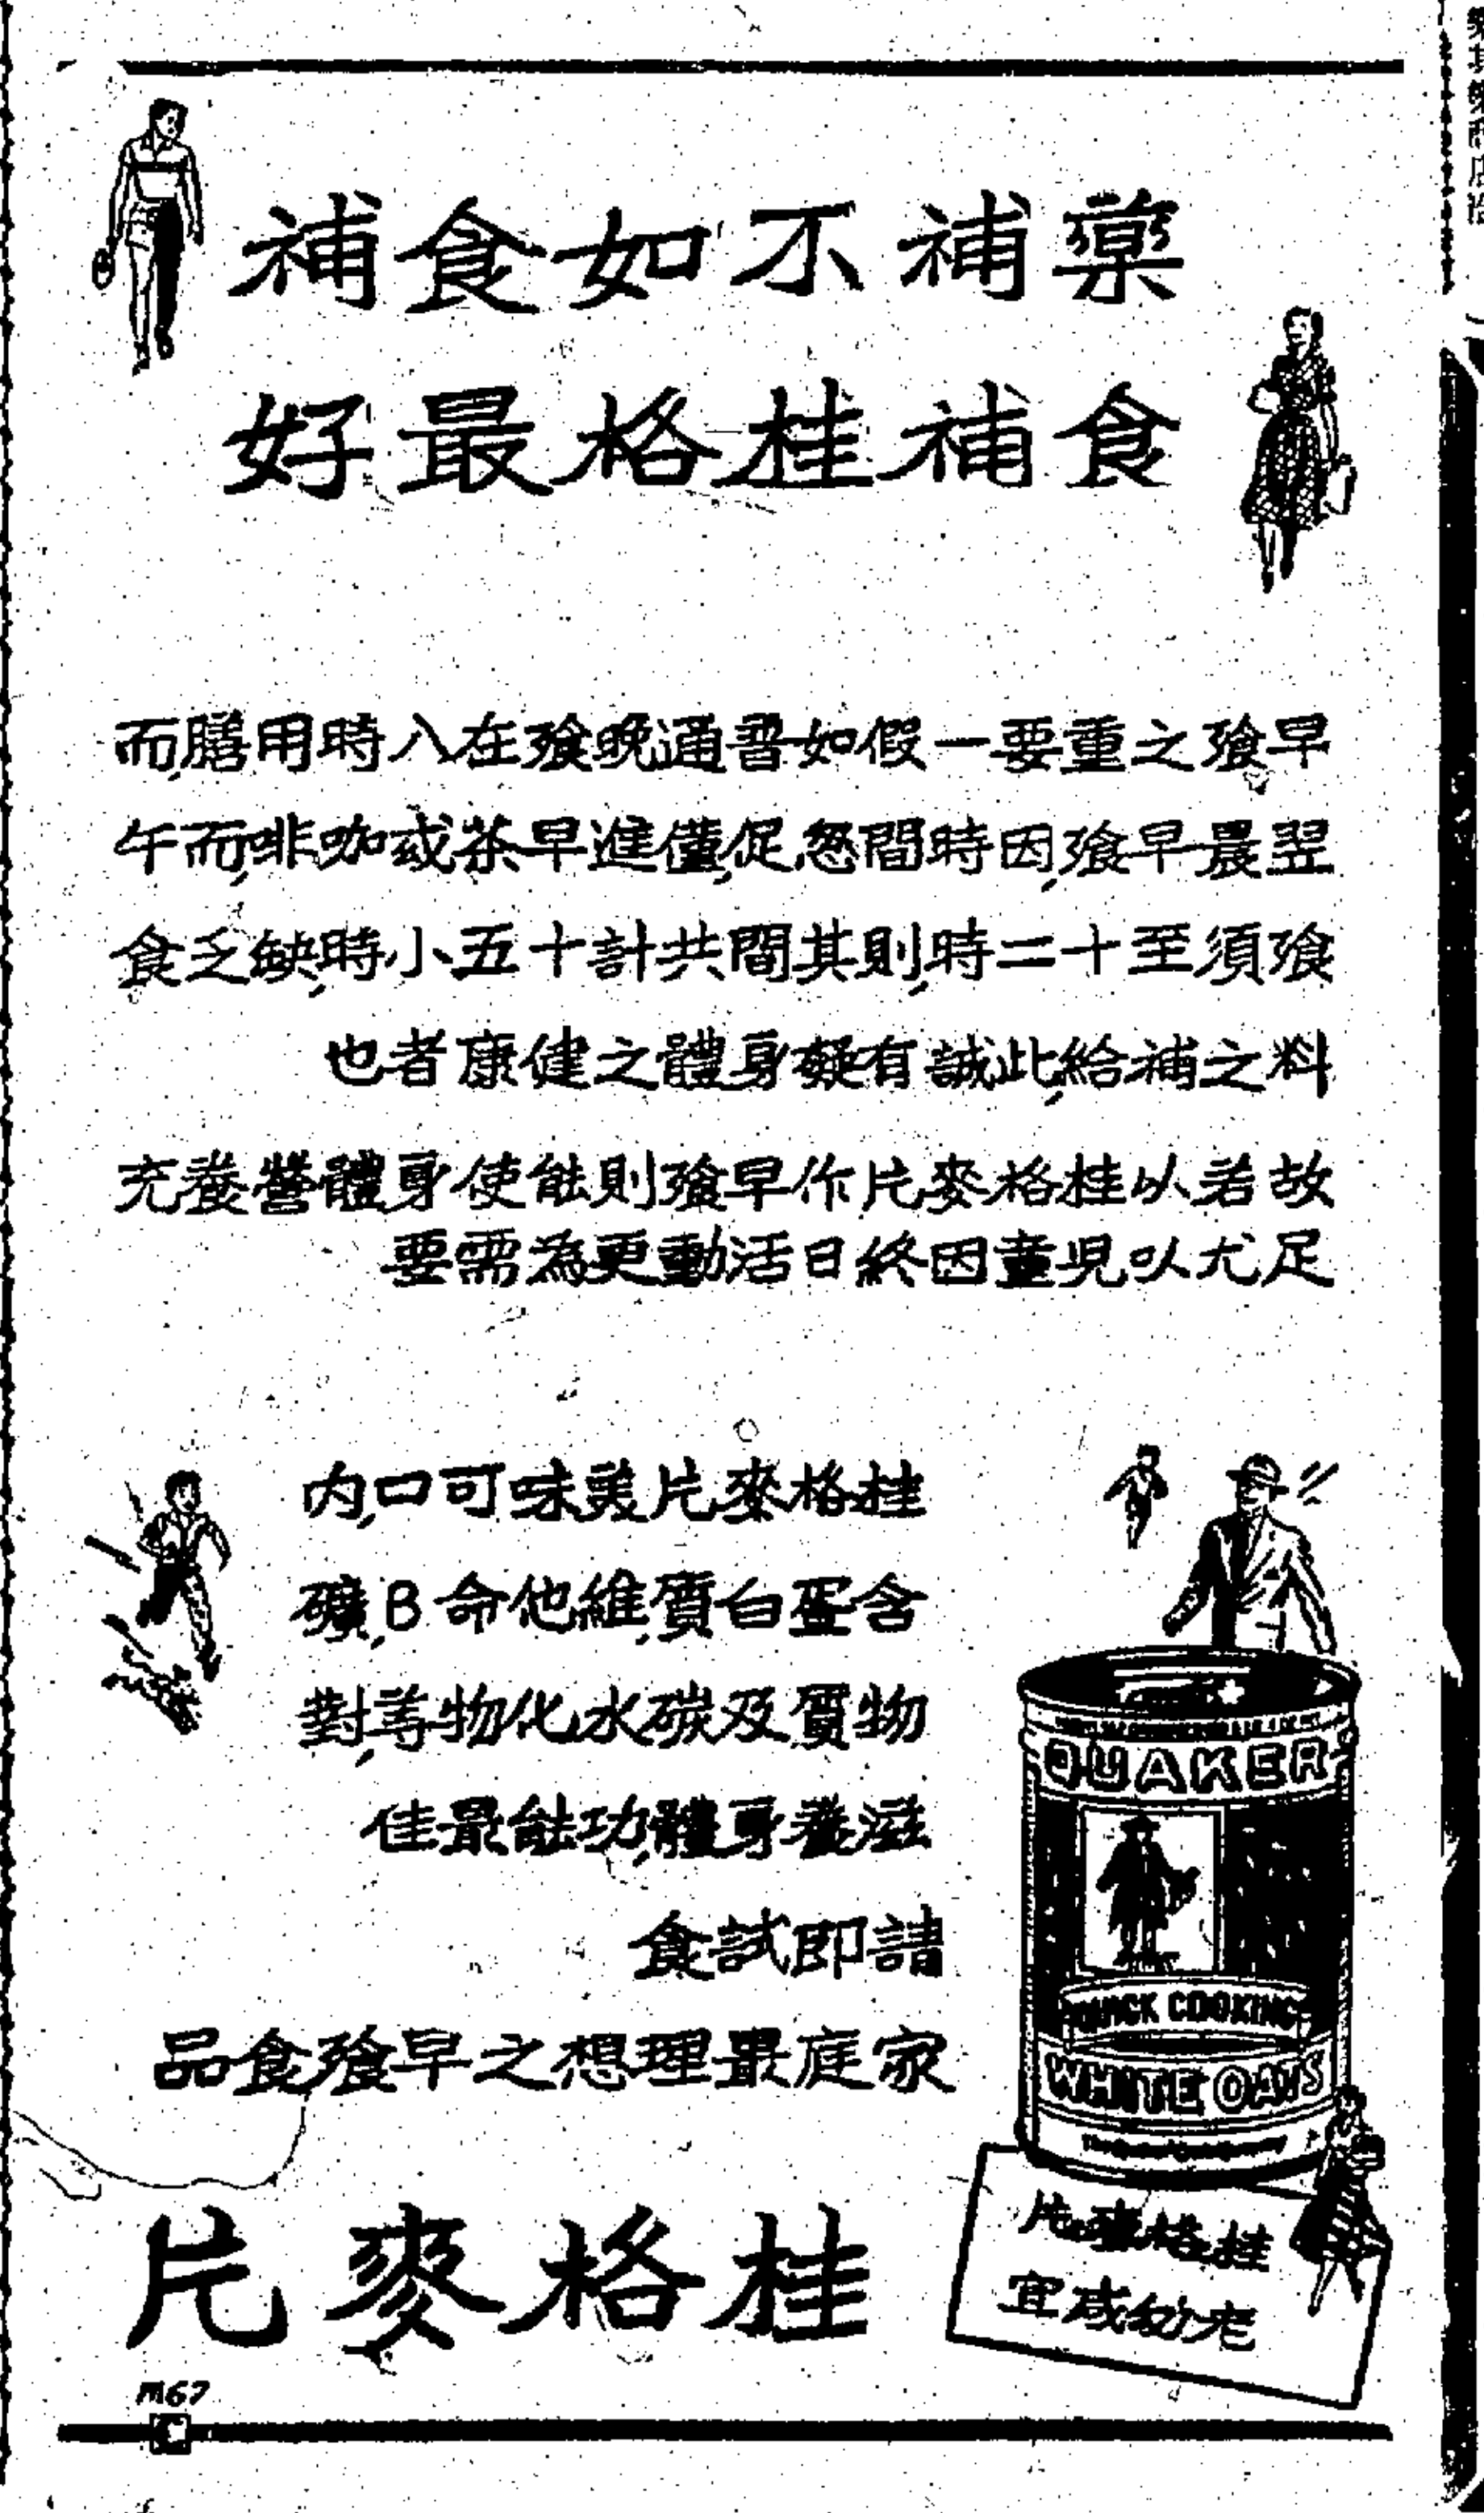 藥補不如食補
食補桂格最好
早飱之重要一假如普通晚飱在八時用膳,而
翌晨早飱,因時間怱促,僅進早茶或咖啡,而午
飱須至十二時,則其間共計十五小時,缺乏食
料之補給,此誠有礙身體之健康者也
故若以桂格麥片作早飱則能使身體營養充
足尤以兒童因終日活動更為需要
桂格麥片美味可口,内
含蛋白質,維他命B,礦
物質及碳水化物等,對
滋養身體,功能最佳
請即試食
家庭最理想之早飱食品
桂格麥片
QUAKER
QUICK COOKING
WHITE OATS
桂格麥片
老幼咸宜
M67
C